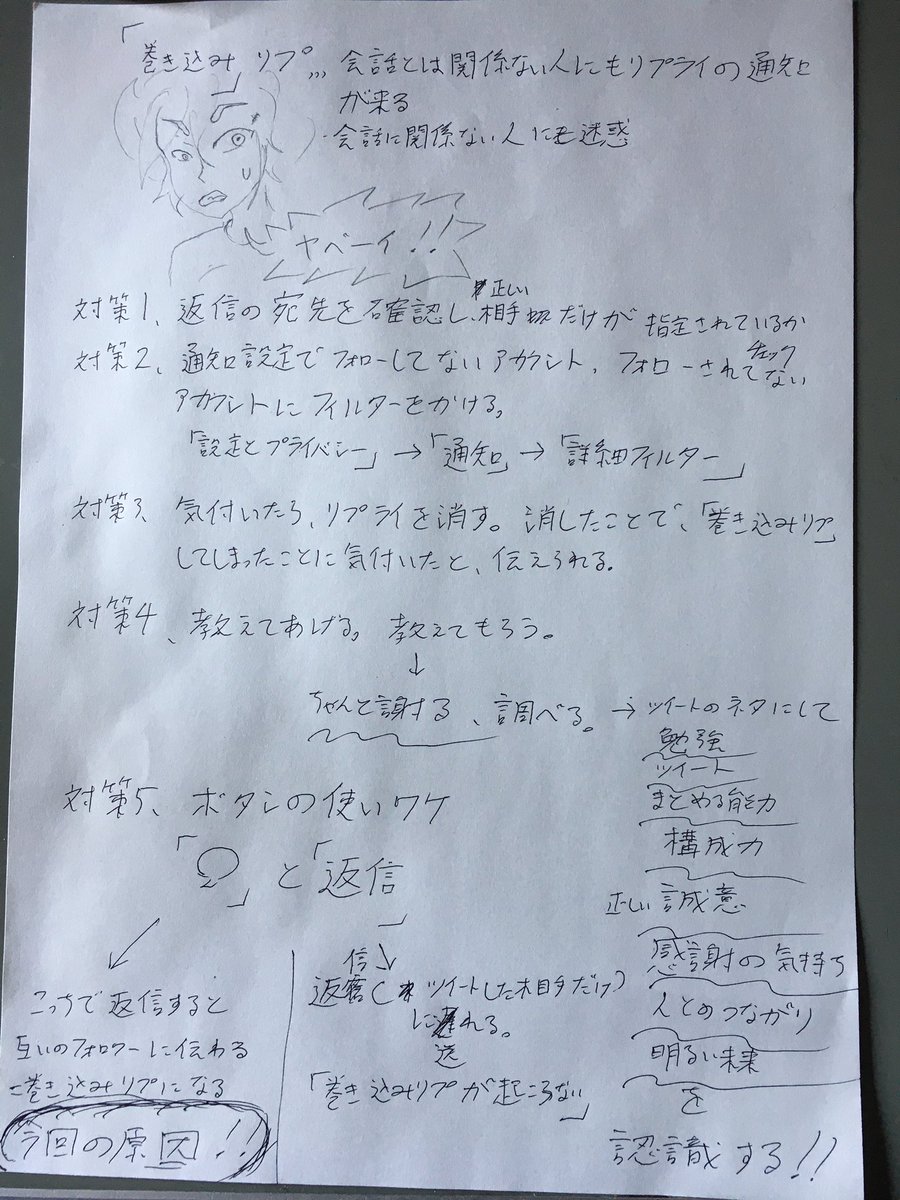 「巻き込みリプ… 会話とは関係ない人にもリプライの通知
が来る
・会話に関係ない人にも迷惑
ヤベーイ!!
対策1、返信の宛先を確認し、正しい相手だけが指定されているか
チェック
対策2、通知設定でフォローしてないアカウント、フォローされてない
アカウントにフィルターをかける。
「設定とプライバシー」→「通知」→「詳細フィルター」
対策3、気付いたら、リプライを消す。消したことで、「巻き込みリプ」
してしまったことに気付いたと、伝えられる。
対策4、教えてあげる。教えてもらう。
↓
ちゃんと謝する、調べる。→ツイートのネタにして
勉強
ツイート
まとめる能力
構成力
正しい誠意
感謝の気持ち
人とのつながり
明るい未来
を
認識する!!
対策5、ボタンの使いワケ
「 」と「返信」
こっちで返信すると
互いのフォロワーに伝わる
-巻き込みリプになる
今回の原因!!
返信(ツイートした相手だけ)
に送れる。
「巻き込みリプが起こらない」